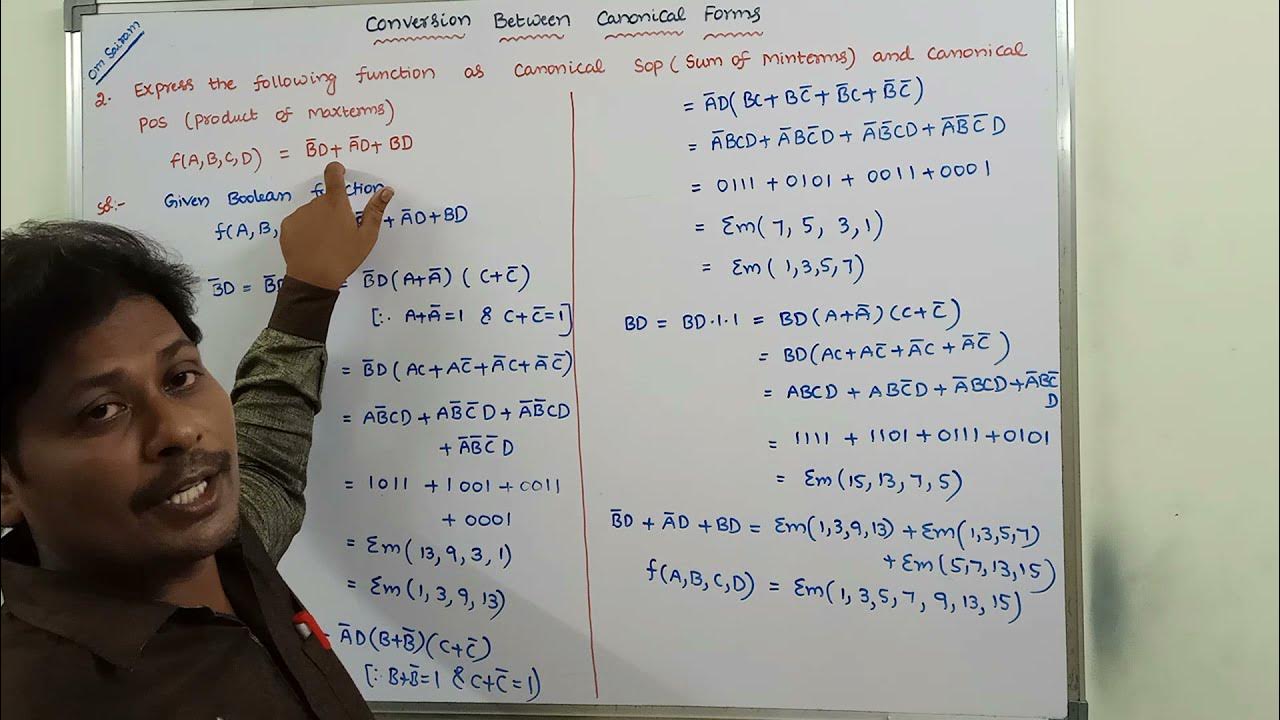 Conversion Between Canonical Forms
Om Sairam
2. Express the following function as canonical SOP (Sum of Minterms) and canonical
POS (Product of Maxterms)
f(A,B,C,D) = B̅D + A̅D + BD
Sol:- Given Boolean function
f(A,B, + A̅D + BD
B̅D = = B̅D(A+A̅) (C+C̅)
[∵ A+A̅=1 & C+C̅=1]
= B̅D(AC+AC̅+A̅C+A̅C̅)
= AB̅CD+AB̅C̅D+A̅B̅CD
+ A̅B̅C̅D
= 1011 + 1001 + 0011
+ 0001
= Σm(13, 9, 3, 1)
= Σm(1, 3, 9, 13)
A̅D(B+B̅)(C+C̅)
[∵ B+B̅=1 & C+C̅=1)
= A̅D(BC+BC̅+B̅C+B̅C̅)
= A̅BCD+A̅BC̅D+A̅B̅CD+A̅B̅C̅D
= 0111 + 0101 + 0011 + 0001
= Σm(7, 5, 3, 1)
= Σm(1,3,5,7)
BD = BD·1·1 = BD(A+A̅)(C+C̅)
= BD(AC+AC̅+A̅C+A̅C̅)
= ABCD + ABC̅D + A̅BCD+A̅BC̅
D
= 1111 + 1101 + 0111 + 0101
= Σm(15, 13, 7, 5)
B̅D + A̅D + BD = Σm(1,3,9,13) + Σm(1,3,5,7)
+ Σm(5,7,13,15)
f(A,B,C,D) = Σm(1, 3, 5, 7, 9, 13, 15)